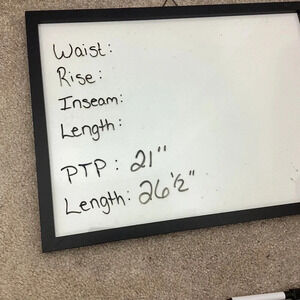 Waist:
Rise:
Inseam:
Length:
PTP: 21"
Length: 26 1/2"